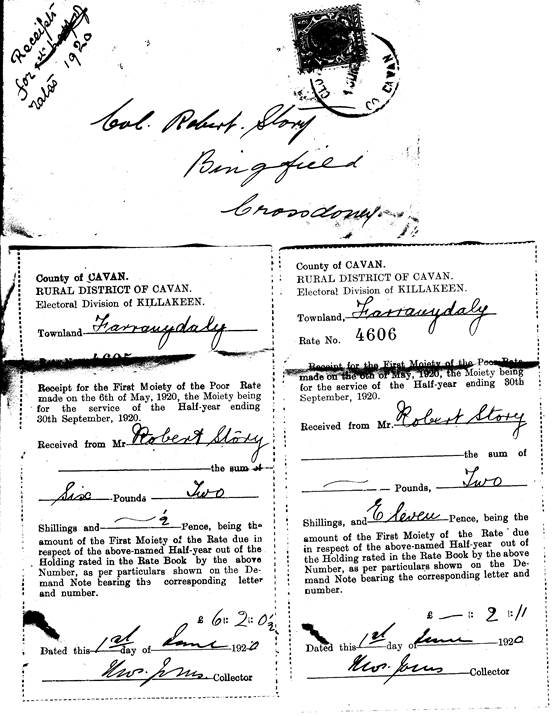 Receipts
for
1920
CLO
1 JUN
CO. CAVAN
Col. Robert. Story
Bingfield
Crossdoney
County of CAVAN.
RURAL DISTRICT OF CAVAN.
Electoral Division of KILLAKEEN.
Townland Farranydaly
Rate No. 4605
Receipt for the First Moiety of the Poor Rate
made on the 6th of May, 1920, the Moiety being
for the service of the Half-year ending
30th September, 1920.
Received from Mr. Robert Story
the sum of
Six Pounds Two
Shillings and ½ Pence, being the
amount of the First Moiety of the Rate due in
respect of the above-named Half-year out of the
Holding rated in the Rate Book by the above
Number, as per particulars shown on the De-
mand Note bearing the corresponding letter
and number.
£ 6 :: 2 :: 0½
Dated this 1st day of June 1920
Collector
County of CAVAN.
RURAL DISTRICT OF CAVAN.
Electoral Division of KILLAKEEN.
Townland, Farranydaly
Rate No. 4606
Receipt for the First Moiety of the Poor Rate
made on the 6th of May, 1920, the Moiety being
for the service of the Half-year ending 30th
September, 1920.
Received from Mr. Robert Story
the sum of
— Pounds, Two
Shillings, and Eleven Pence, being the
amount of the First Moiety of the Rate due
in respect of the above-named Half-year out of
the Holding rated in the Rate Book by the above
Number, as per particulars shown on the De-
mand Note bearing the corresponding letter and
number.
£ — :: 2 :: 11
Dated this 1st day of June 1920
Collector